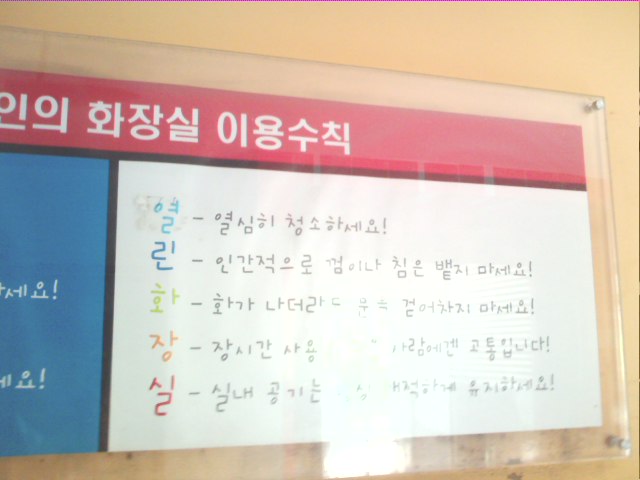 인의 화장실 이용수칙
열 - 열심히 청소하세요!
린 - 인간적으로 껌이나 침은 뱉지 마세요!
화 - 화가 나더라도 문을 걷어차지 마세요!
장 - 장시간 사용 사람에겐 고통입니다!
실 - 실내 공기는 쾌적하게 유지하세요!
세요!
세요!